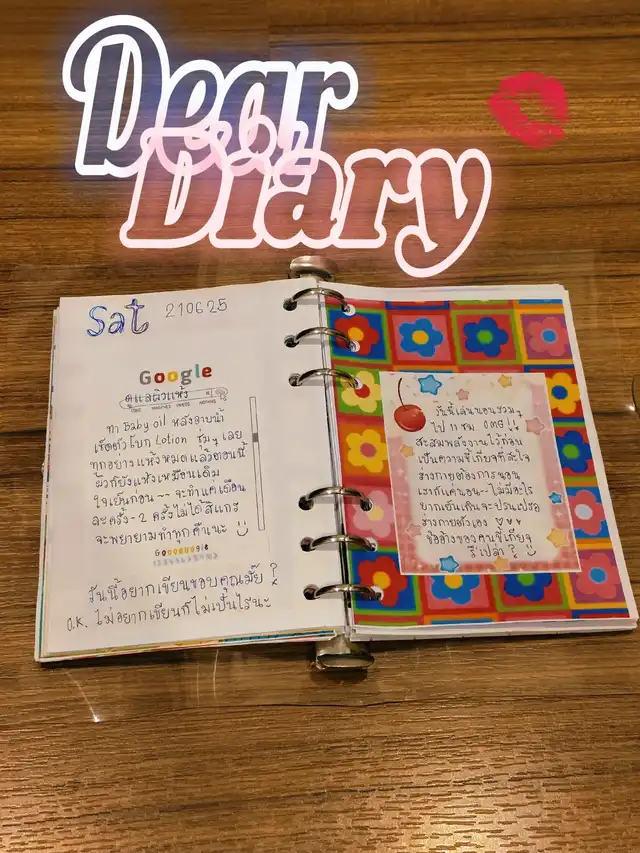 Dear
Diary
Sat 210625
Google
ดูแลผิวแห้ง
ทา Baby oil หลังอาบน้ำ
เช็ดตัวโบก Lotion ชุ่มๆ เลย
ทุกอย่างแห้งหมดแล้วตอนนี้
ผิวก็ยังแห้งเหมือนเดิม
ใจเย็นก่อน ~~ จะทำแค่เดือน
ละครั้ง-2 ครั้งไม่ได้สิแกร
จะพยายามทำทุกค่ำเนะ
Goooooogle
วันนี้อยากเขียนขอบคุณมั้ย?
O.K. ไม่อยากเขียนก็ไม่เป็นไรนะ
วันนี้เล่นนอนรวมๆ
ไป 11 ชม. OMG!!
สะสมพลังงานไว้ก่อน
เป็นความขี้เกียจที่สะใจ
ร่างกายต้องการนอน
เราก็แค่นอน~ ไม่มีอะไร
ยากเย็นเกินจะปรนเปรอ
ร่างกายตัวเอง ♡♡♡
ข้ออ้างของคนขี้เกียจ
รึเปล่า?